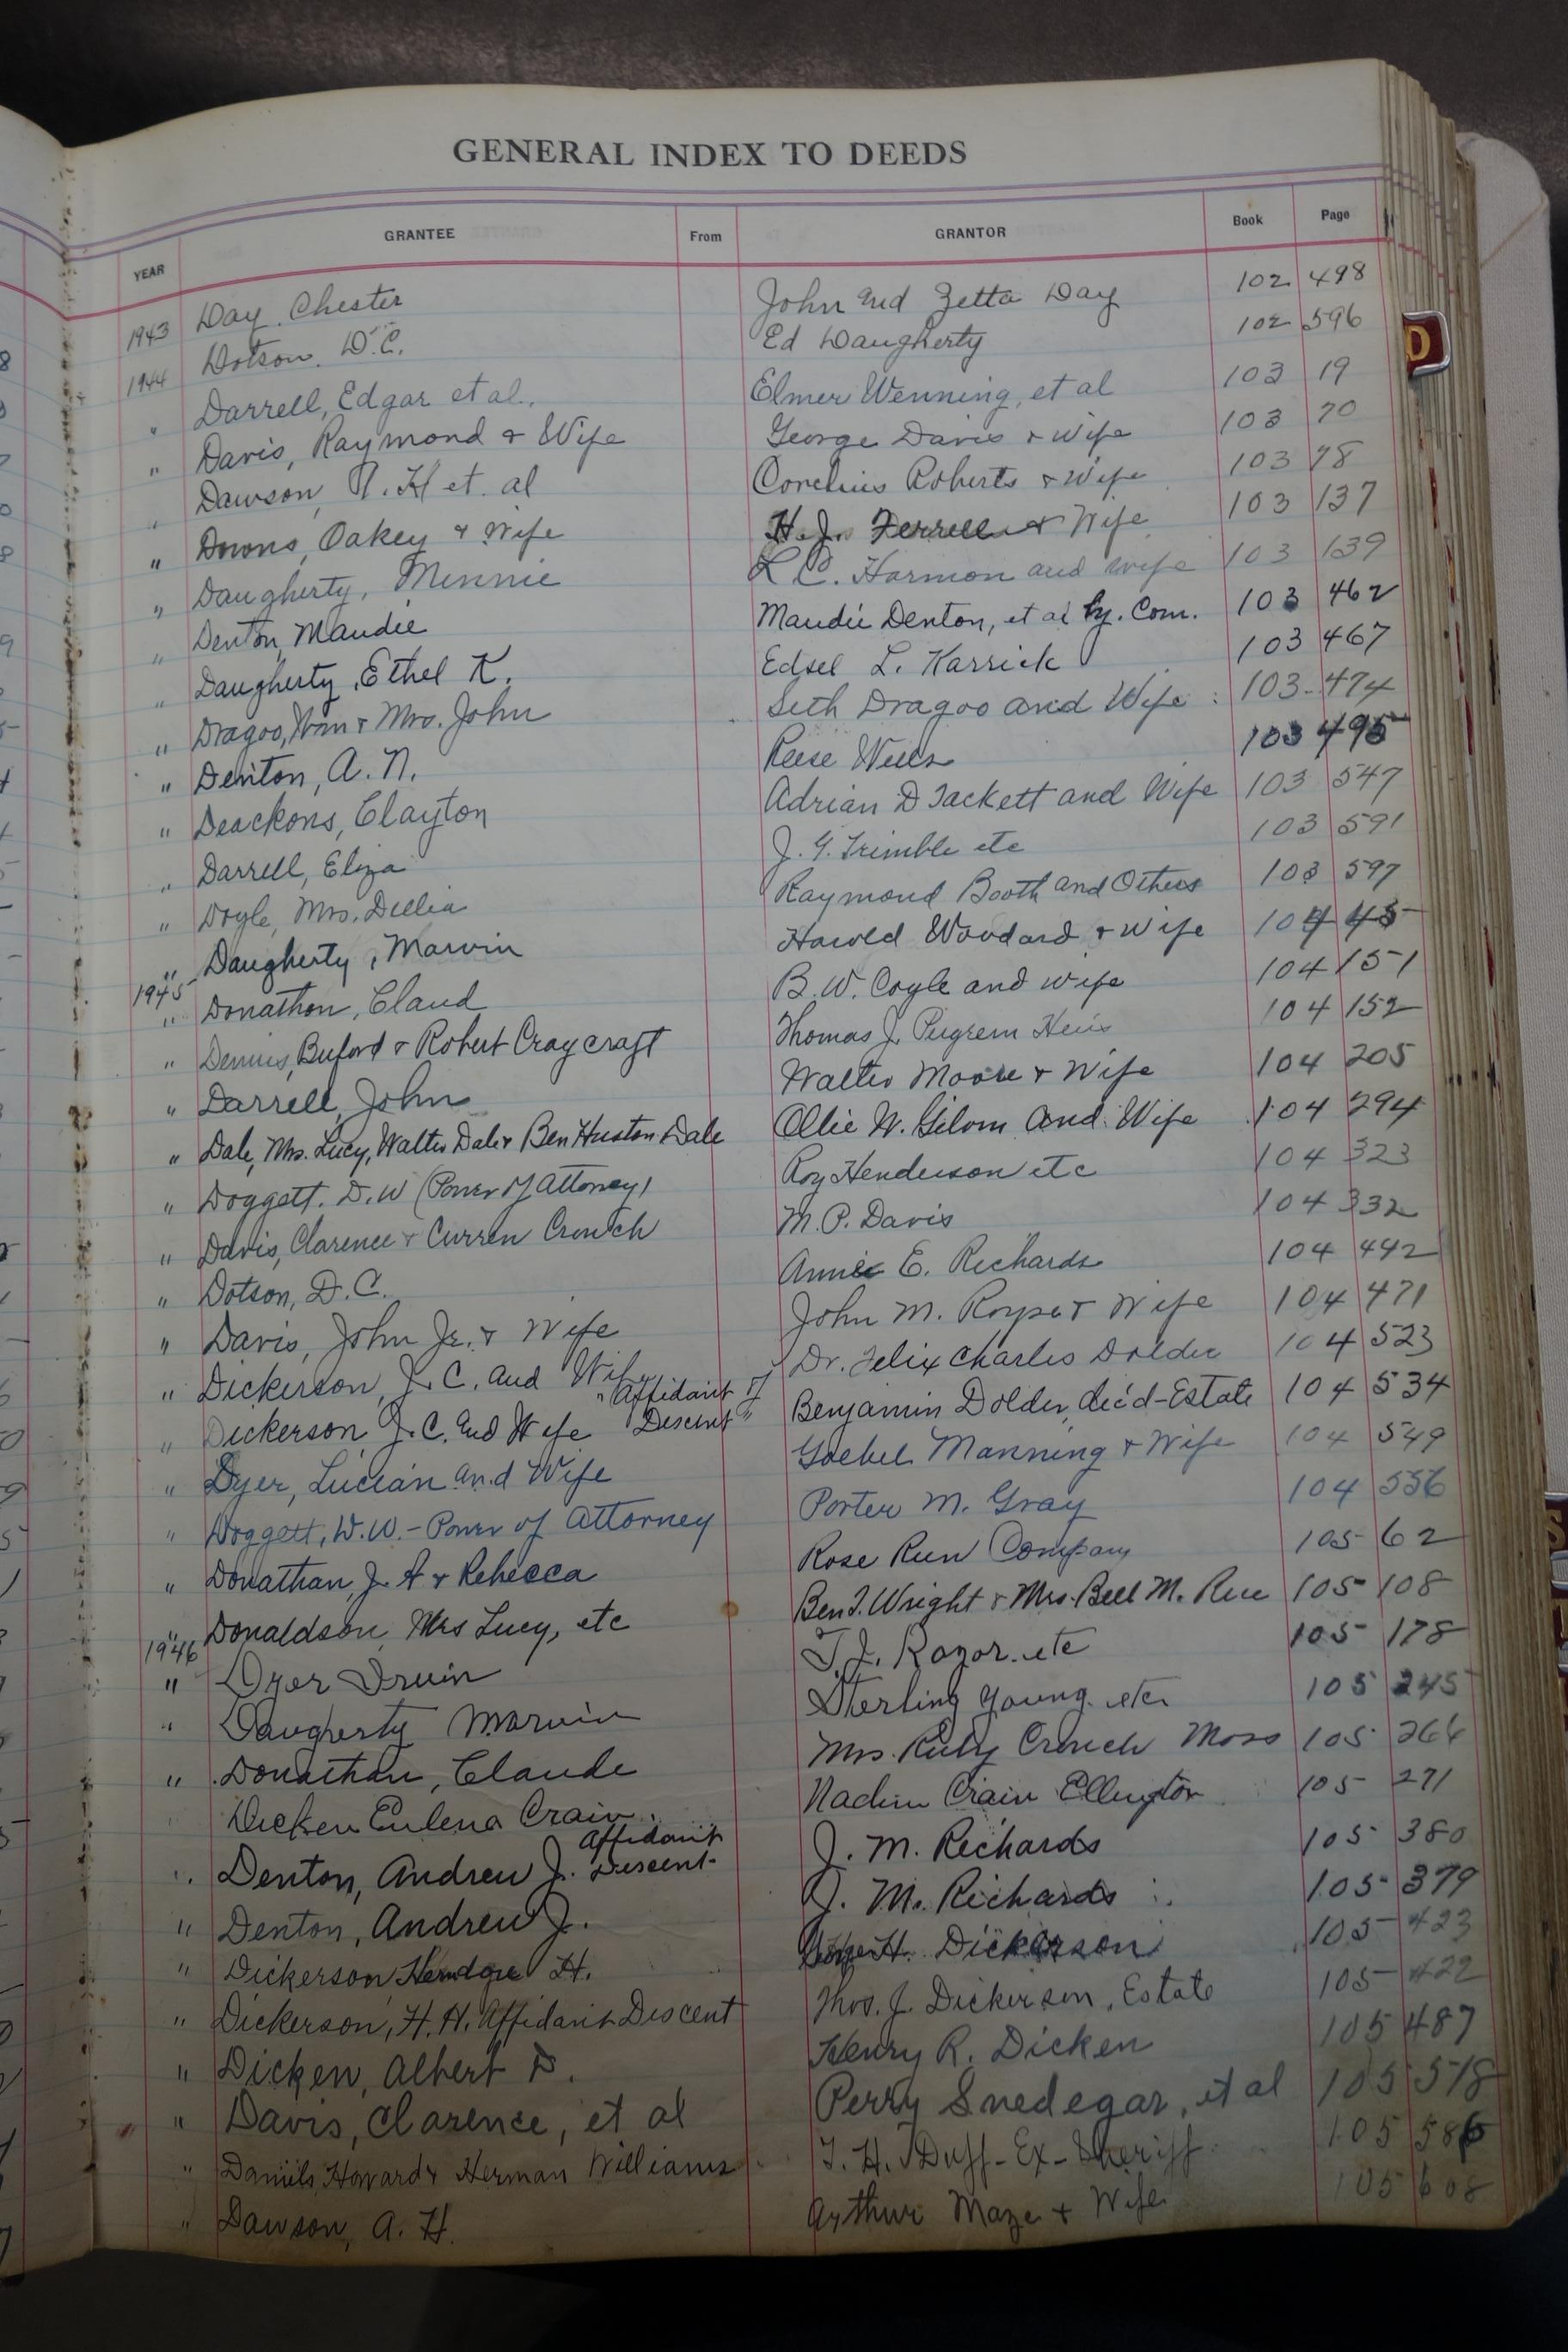 GENERAL INDEX TO DEEDS
YEAR GRANTEE From GRANTOR Book Page
1943 Day, Chester John and Zetta Day 102 498
1944 Dotson, D.C. Ed Daugherty 102 596
" Darrell, Edgar et al. Elmer Wenning, et al 103 19
" Davis, Raymond & Wife George Davis & Wife 103 70
" Dawson, A. H et. al Cornelius Roberts & Wife 103 78
" Downs, Oakey & Wife H. J. Ferrell & Wife 103 137
" Daugherty, Minnie L C. Harmon and wife 103 139
" Denton, Maudie Maudie Denton, et al by. Com. 103 462
" Daugherty, Ethel K. Edsel L. Karrick 103 467
" Dragoo, & Mrs. John Seth Dragoo and Wife 103 474
" Denton, A. N. Reese Wells 103 495
" Deackons, Clayton Adrian D Tackett and Wife 103 547
" Darrell, Eliza J. G. Trimble etc 103 591
" Doyle, Mrs. Dellia Raymond Booth and Others 103 597
" Daugherty, Marvin Harold Woodard & Wife 104 45
1945 " Donathon, Claud B. W. Coyle and wife 104 151
" Dennis, Buford & Robert Craycraft Thomas J. Pergrem Heirs 104 152
" Darrell, John Walter Moore & Wife 104 205
" Dale, Mrs. Lucy, Walter Dale & Ben Huston Dale Ollie W. and Wife 104 294
" Doggett. D. W (Power of Attorney) Roy Henderson etc 104 323
" Davis, Clarence & Curren Crouch M. P. Davis 104 332
" Dotson, D. C. Annie E. Richards 104 442
" Davis, John Jr. & Wife John M. Royse & Wife 104 471
" Dickerson, J. C. and Wife Dr. Felix Charles Dolder 104 523
" Dickerson J. C. and Wife "Affidavit of Descent" Benjamin Dolder, dec'd-Estate 104 534
" Dyer, Lucian and Wife Goebel Manning & Wife 104 549
" Doggett, W. W. - Power of Attorney Porter M. Gray 104 556
" Donathan, J. A & Rebecca Rose Run Company 105 62
" Donaldson, Mrs Lucy, etc Ben T. Wright & Mrs. Bell M. Rice 105 108
1946 " Dyer Irvin T. J. Razor etc 105 178
" Daugherty Marvin Sterling Young etc 105 245
" Donathan, Claude Mrs. Ruby Crouch Moss 105 266
Dicken Eulena Crain Nadine Crain Ellington 105 271
" Denton, Andrew J. Affidavit Descent J. M. Richards 105 380
" Denton, Andrew J. J. M. Richards 105 379
" Dickerson H. H. Dickerson 105 423
" Dickerson, H. H. Affidavit Descent Thos. J. Dickerson, Estate 105 422
" Dicken, Albert D. Henry R. Dicken 105 487
" Davis, Clarence, et al Perry Snedegar, et al 105 578
" Daniels, Howard & Herman Williams T. H. Duff - Ex-Sheriff 105 586
" Dawson, A. H. Arthur Maze & Wife 105 608
D